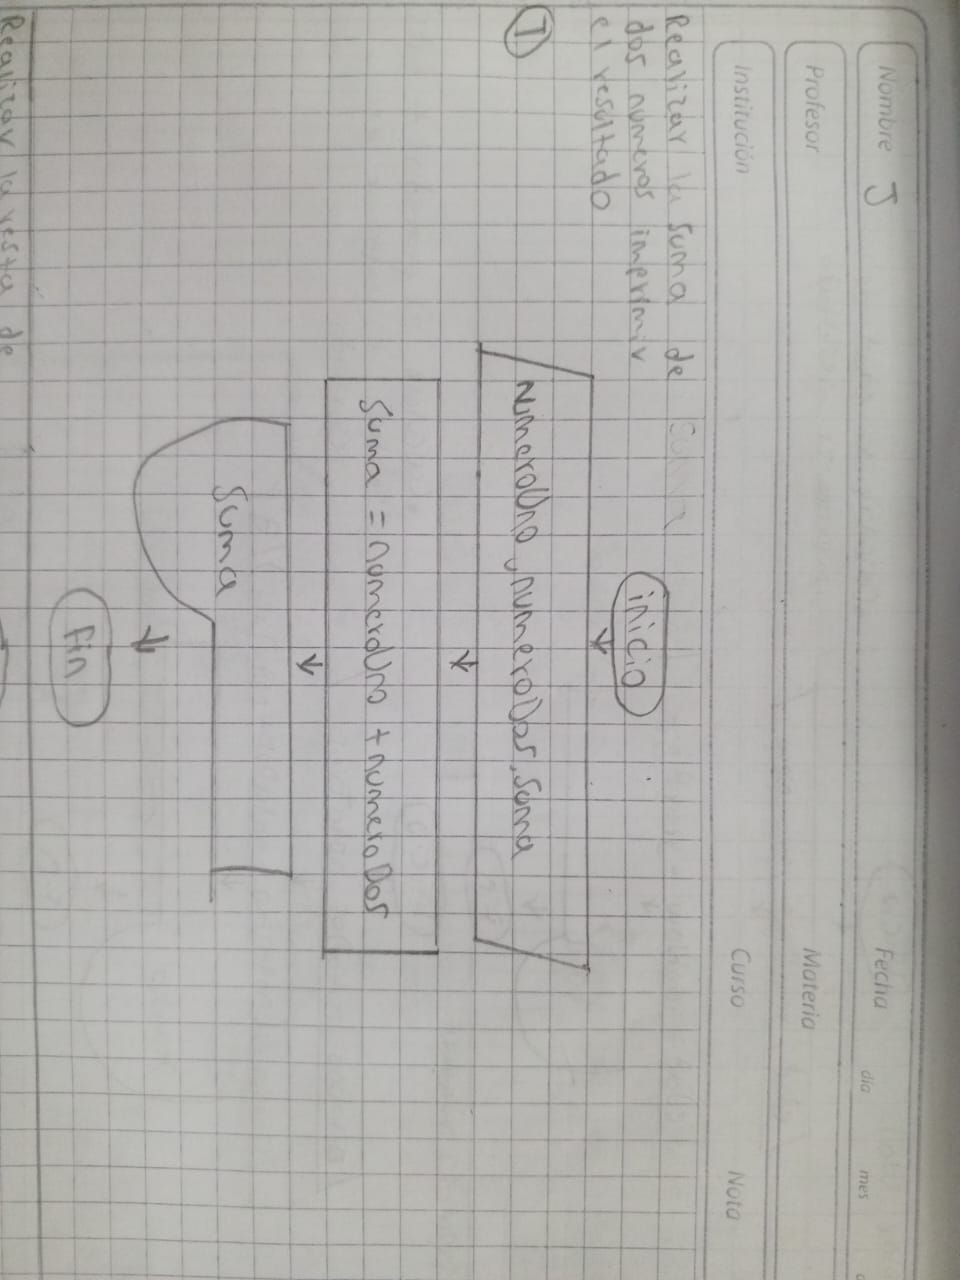 Nombre J Fecha día mes
Profesor Materia
Institución Curso Nota
Realizar la suma de
dos numeros imprimir
el resultado
1
inicio
NumeroUno, numeroDos, Suma
Suma = numeroUno + numeroDos
Suma
Fin
Realizar la resta de